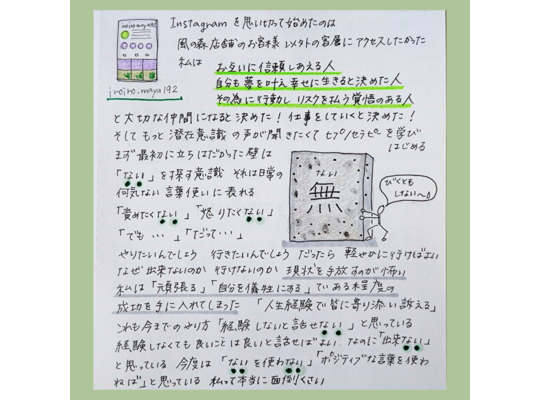 Instagram を思い切って始めたのは
風の森店舗のお客様以外の客層にアクセスしたかった
iroiro.maya192
私は お互いに信頼しあえる人
自分も夢を叶え幸せに生きると決めた人
その為に行動しリスクを払う覚悟のある人
と大切な仲間になると決めた！仕事をしていくと決めた！
そしてもっと潜在意識の声が聞きたくて セラピを学びはじめる
まず最初に立ちはだかった壁は
「ない」を探す意識 それは日常の
何気ない言葉使いに表れる
「責めたくない」「怒りたくない」
「でも・・・」「だって・・・」
ない
無
びくとも
しない〜
やりたいんでしょう 行きたいんでしょう だったら 軽やかに行けばよい
なぜ出来ないのか 行けないのか 現状を手放すのが怖い
私は「頑張る」「自分を犠牲にする」である程度の
成功を手に入れてしまった 「人生経験で皆に寄り添い訴える」
これも今までのやり方「経験しないと話せない」と思っている
経験しなくても良いことは良いと話せばよい なのに「出来ない」
と思っている 今度は「ないを使わない」「ポジティブな言葉を使わ
ねば」と思っている 私って本当に面倒くさい